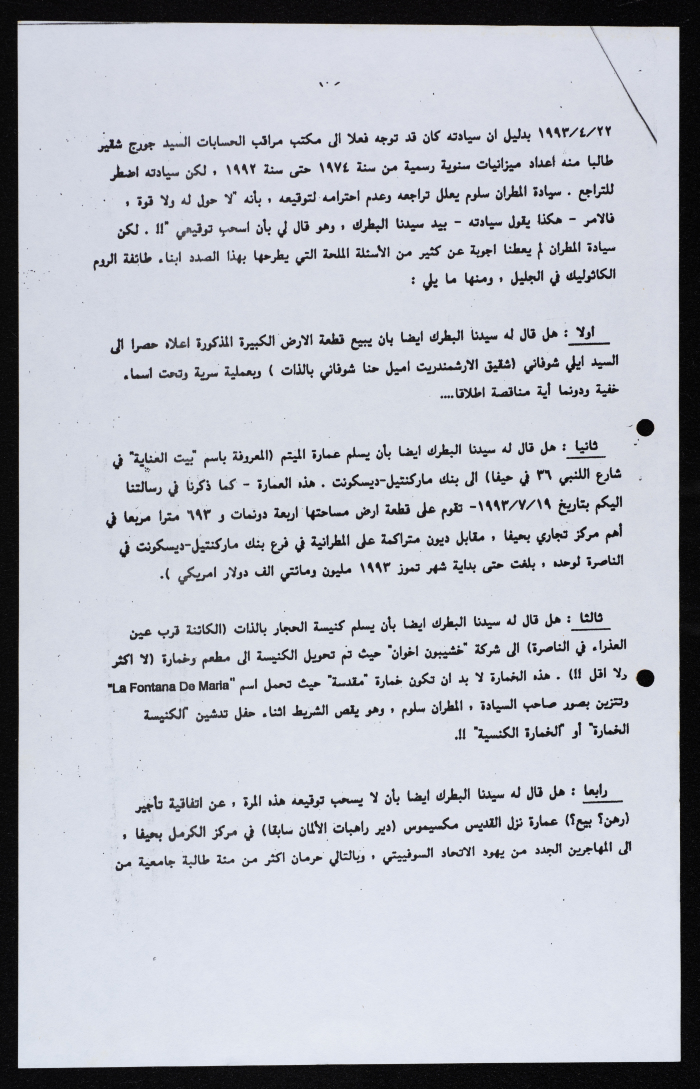 -١٠-
١٩٩٣/٤/٢٢ بدليل ان سيادته كان قد توجه فعلا الى مكتب مراقب الحسابات السيد جورج شقير
طالبا منه اعداد ميزانيات سنوية رسمية من سنة ١٩٧٤ حتى سنة ١٩٩٢ ، لكن سيادته اضطر
للتراجع . سيادة المطران سلوم يعلل تراجعه وعدم احترامه لتوقيعه ، بأنه "لا حول له ولا قوة ،
فالامر - هكذا يقول سيادته - بيد سيدنا البطرك ، وهو قال لي بأن اسحب توقيعي "!! . لكن
سيادة المطران لم يعطنا اجوبة عن كثير من الأسئلة الملحة التي يطرحها بهذا الصدد ابناء طائفة الروم
الكاثوليك في الجليل ، ومنها ما يلي :
اولا : هل قال له سيدنا البطرك ايضا بان يبيع قطعة الارض الكبيرة المذكورة اعلاه حصرا الى
السيد ايلي شوفاني (شقيق الارشمندريت اميل حنا شوفاني بالذات ) وبعملية سرية وتحت اسماء
خفية ودونما أية مناقصة اطلاقا....
ثانيا : هل قال له سيدنا البطرك ايضا بأن يسلم عمارة الميتم (المعروفة باسم "بيت العناية" في
شارع اللنبي ٣٦ في حيفا) الى بنك ماركنتيل-ديسكونت . هذه العمارة - كما ذكرنا في رسالتنا
اليكم بتاريخ ١٩٩٣/٧/١٩- تقوم على قطعة ارض مساحتها اربعة دونمات و ٦٩٣ مترا مربعا في
أهم مركز تجاري بحيفا ، مقابل ديون متراكمة على المطرانية في فرع بنك ماركنتيل-ديسكونت في
الناصرة لوحده ، بلغت حتى بداية شهر تموز ١٩٩٣ مليون ومائتي الف دولار امريكي ).
ثالثا : هل قال له سيدنا البطرك ايضا بأن يسلم كنيسة الحجار بالذات (الكائنة قرب عين
العذراء في الناصرة) الى شركة "خشيبون اخوان" حيث تم تحويل الكنيسة الى مطعم وخمارة (لا اكثر
ولا اقل !!) . هذه الخمارة لا بد ان تكون خمارة "مقدسة" حيث تحمل اسم "La Fontana De Maria"
وتتزين بصور صاحب السيادة ، المطران سلوم ، وهو يقص الشريط اثناء حفل تدشين "الكنيسة
الخمارة" أو "الخمارة الكنسية" !!.
رابعا : هل قال له سيدنا البطرك ايضا بأن لا يسحب توقيعه هذه المرة ، عن اتفاقية تأجير
(رهن؟ بيع؟) عمارة نزل القديس مكسيموس (دير راهبات الألمان سابقا) في مركز الكرمل بحيفا ،
الى المهاجرين الجدد من يهود الاتحاد السوفييتي ، وبالتالي حرمان اكثر من مئة طالبة جامعية من